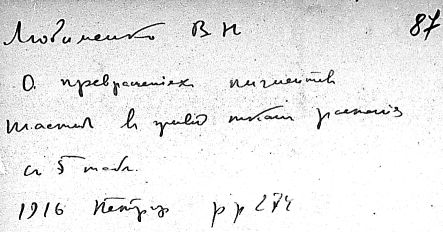 Любименко В Н 87
О превращенiях пигментов
пластид в живой ткани растенiя
с 5 табл.
1916 Петрогр pp 274